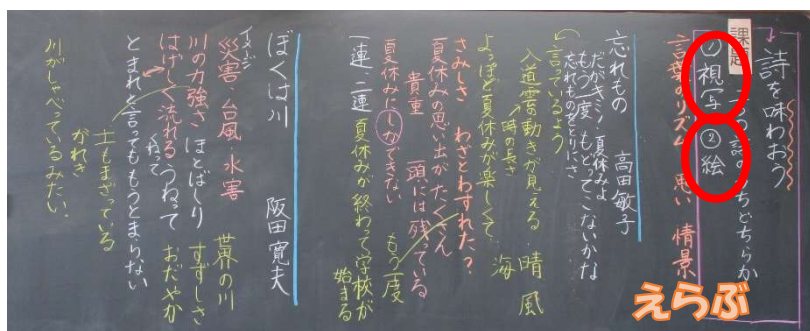 詩を味わおう
課題
①視写 ②絵
言葉のリズム 思い 情景
えらぶ
忘れもの 高田敏子
だがキミ!夏休みよ
もう一度 もどってこないかな
忘れものをとりにさ
言っているよう
入道雲の動きが見える 晴 風
時の長さ
よっぽど夏休みが楽しくて 海
さみしさ わざとわすれた?
夏休みの思い出がたくさん
貴重 頭には残っている
夏休みにしかできない もう一度
一連、二連 夏休みが終わって学校が
始まる
ぼくは川 阪田寛夫
イメージ
災害・台風・水害 世界の川
川の力強さ ほとばしり すずしさ
はげしく流れる うねって おだやか
とまれと言ってももうとまらない
土もまざっている
がれき
川がしゃべっているみたい。